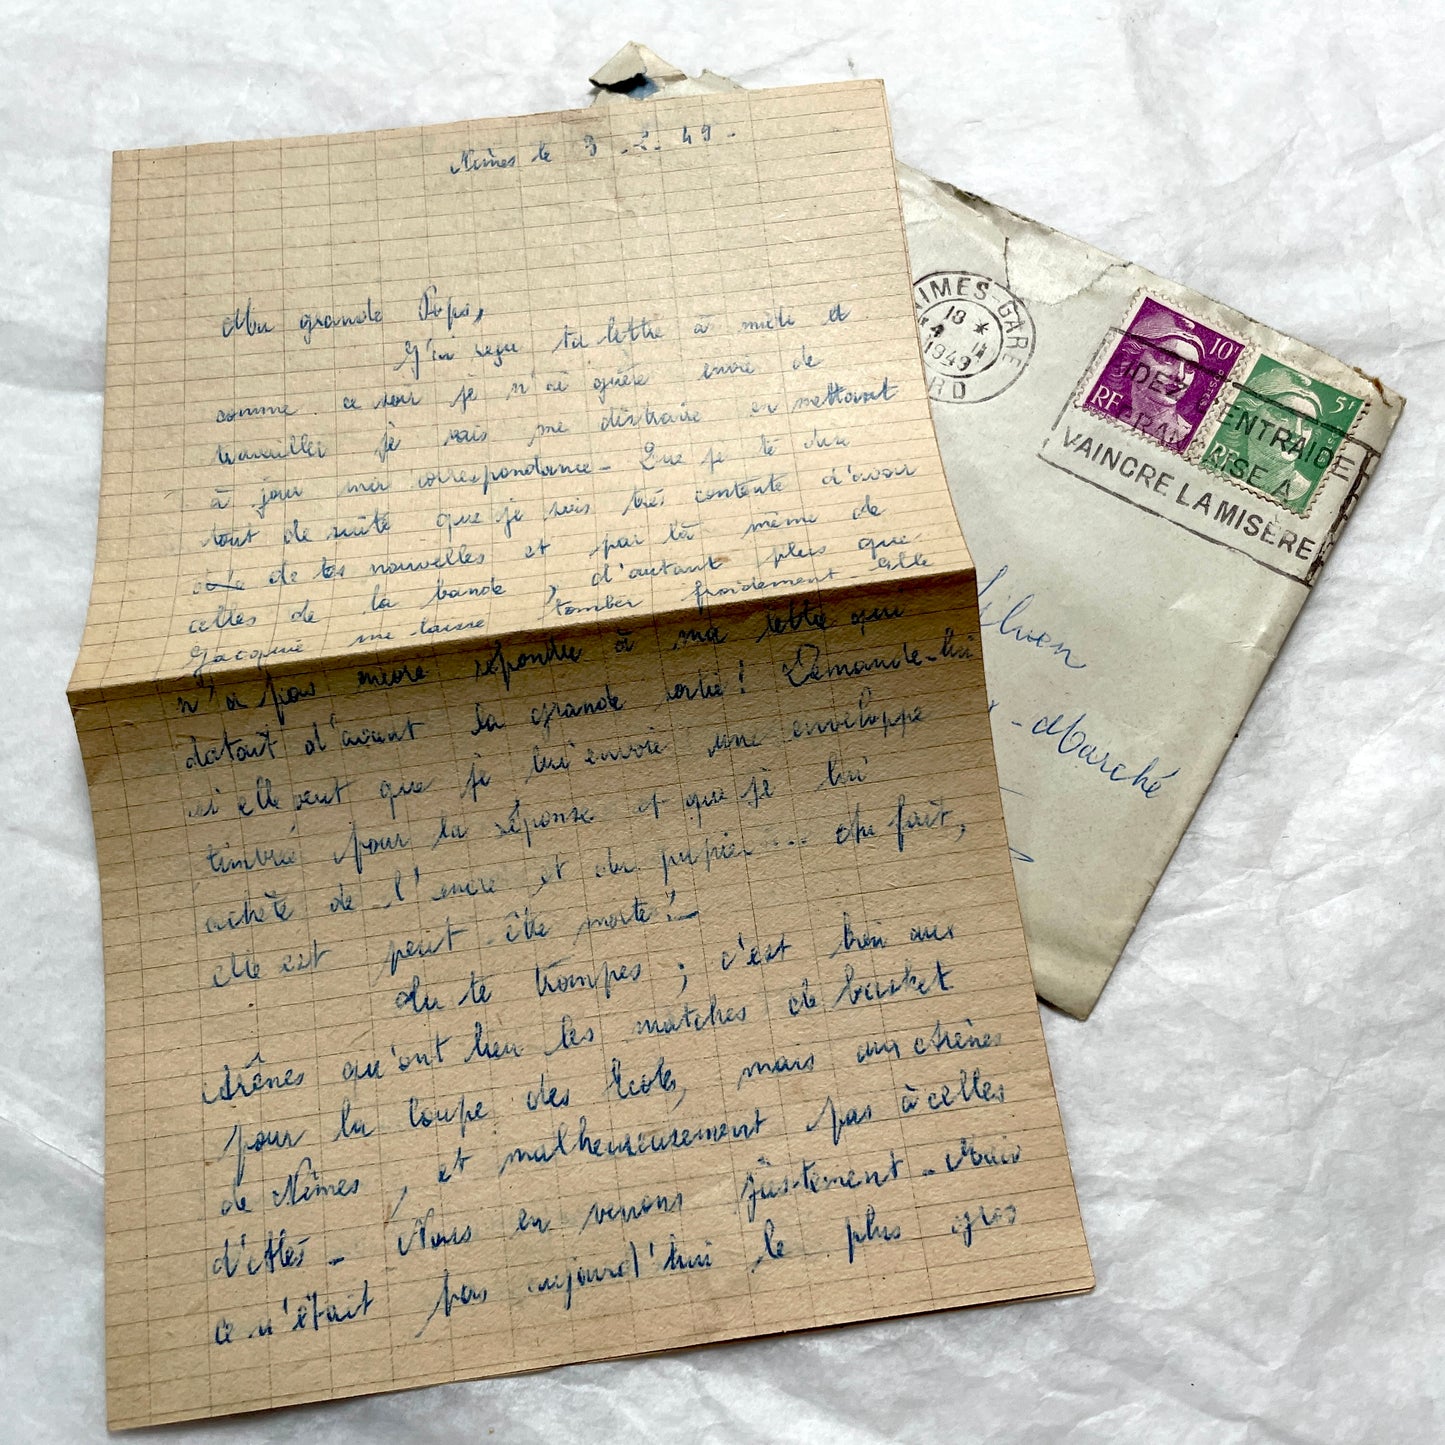 Nîmes le 3-2-49-
Ma grande
J'ai reçu ta lettre à midi et
comme ce soir je n'ai guère envie de
travailler je vais me distraire en mettant
à jour ma correspondance - Que je te dise
tout de suite que je suis très contente d'avoir
de tes nouvelles et par là même de
celles de la bande, d'autant plus que
Jacquie me laisse tomber froidement - Elle
n'a pas encore répondu à ma lettre qui
datait d'avant la grande sortie! Demande-lui
si elle veut que je lui envoie une enveloppe
timbrée pour la réponse et que je lui
achète de l'encre et du papier... Au fait,
elle est peut-être morte? -
Tu te trompes; c'est bien aux
Arènes qu'ont lieu les matches de basket
pour la Coupe des Ecoles, mais aux Arènes
de Nîmes, et malheureusement pas à celles
d'Alès - Nous en venons justement - Mais
ce n'était pas aujourd'hui le plus gros
NIMES-GARE
18 *
4 II
1949
GARD
10F
POSTES
RF
5F
RF
ENTRAIDE
FRANÇAISE A
VAINCRE LA MISÈRE
Marché